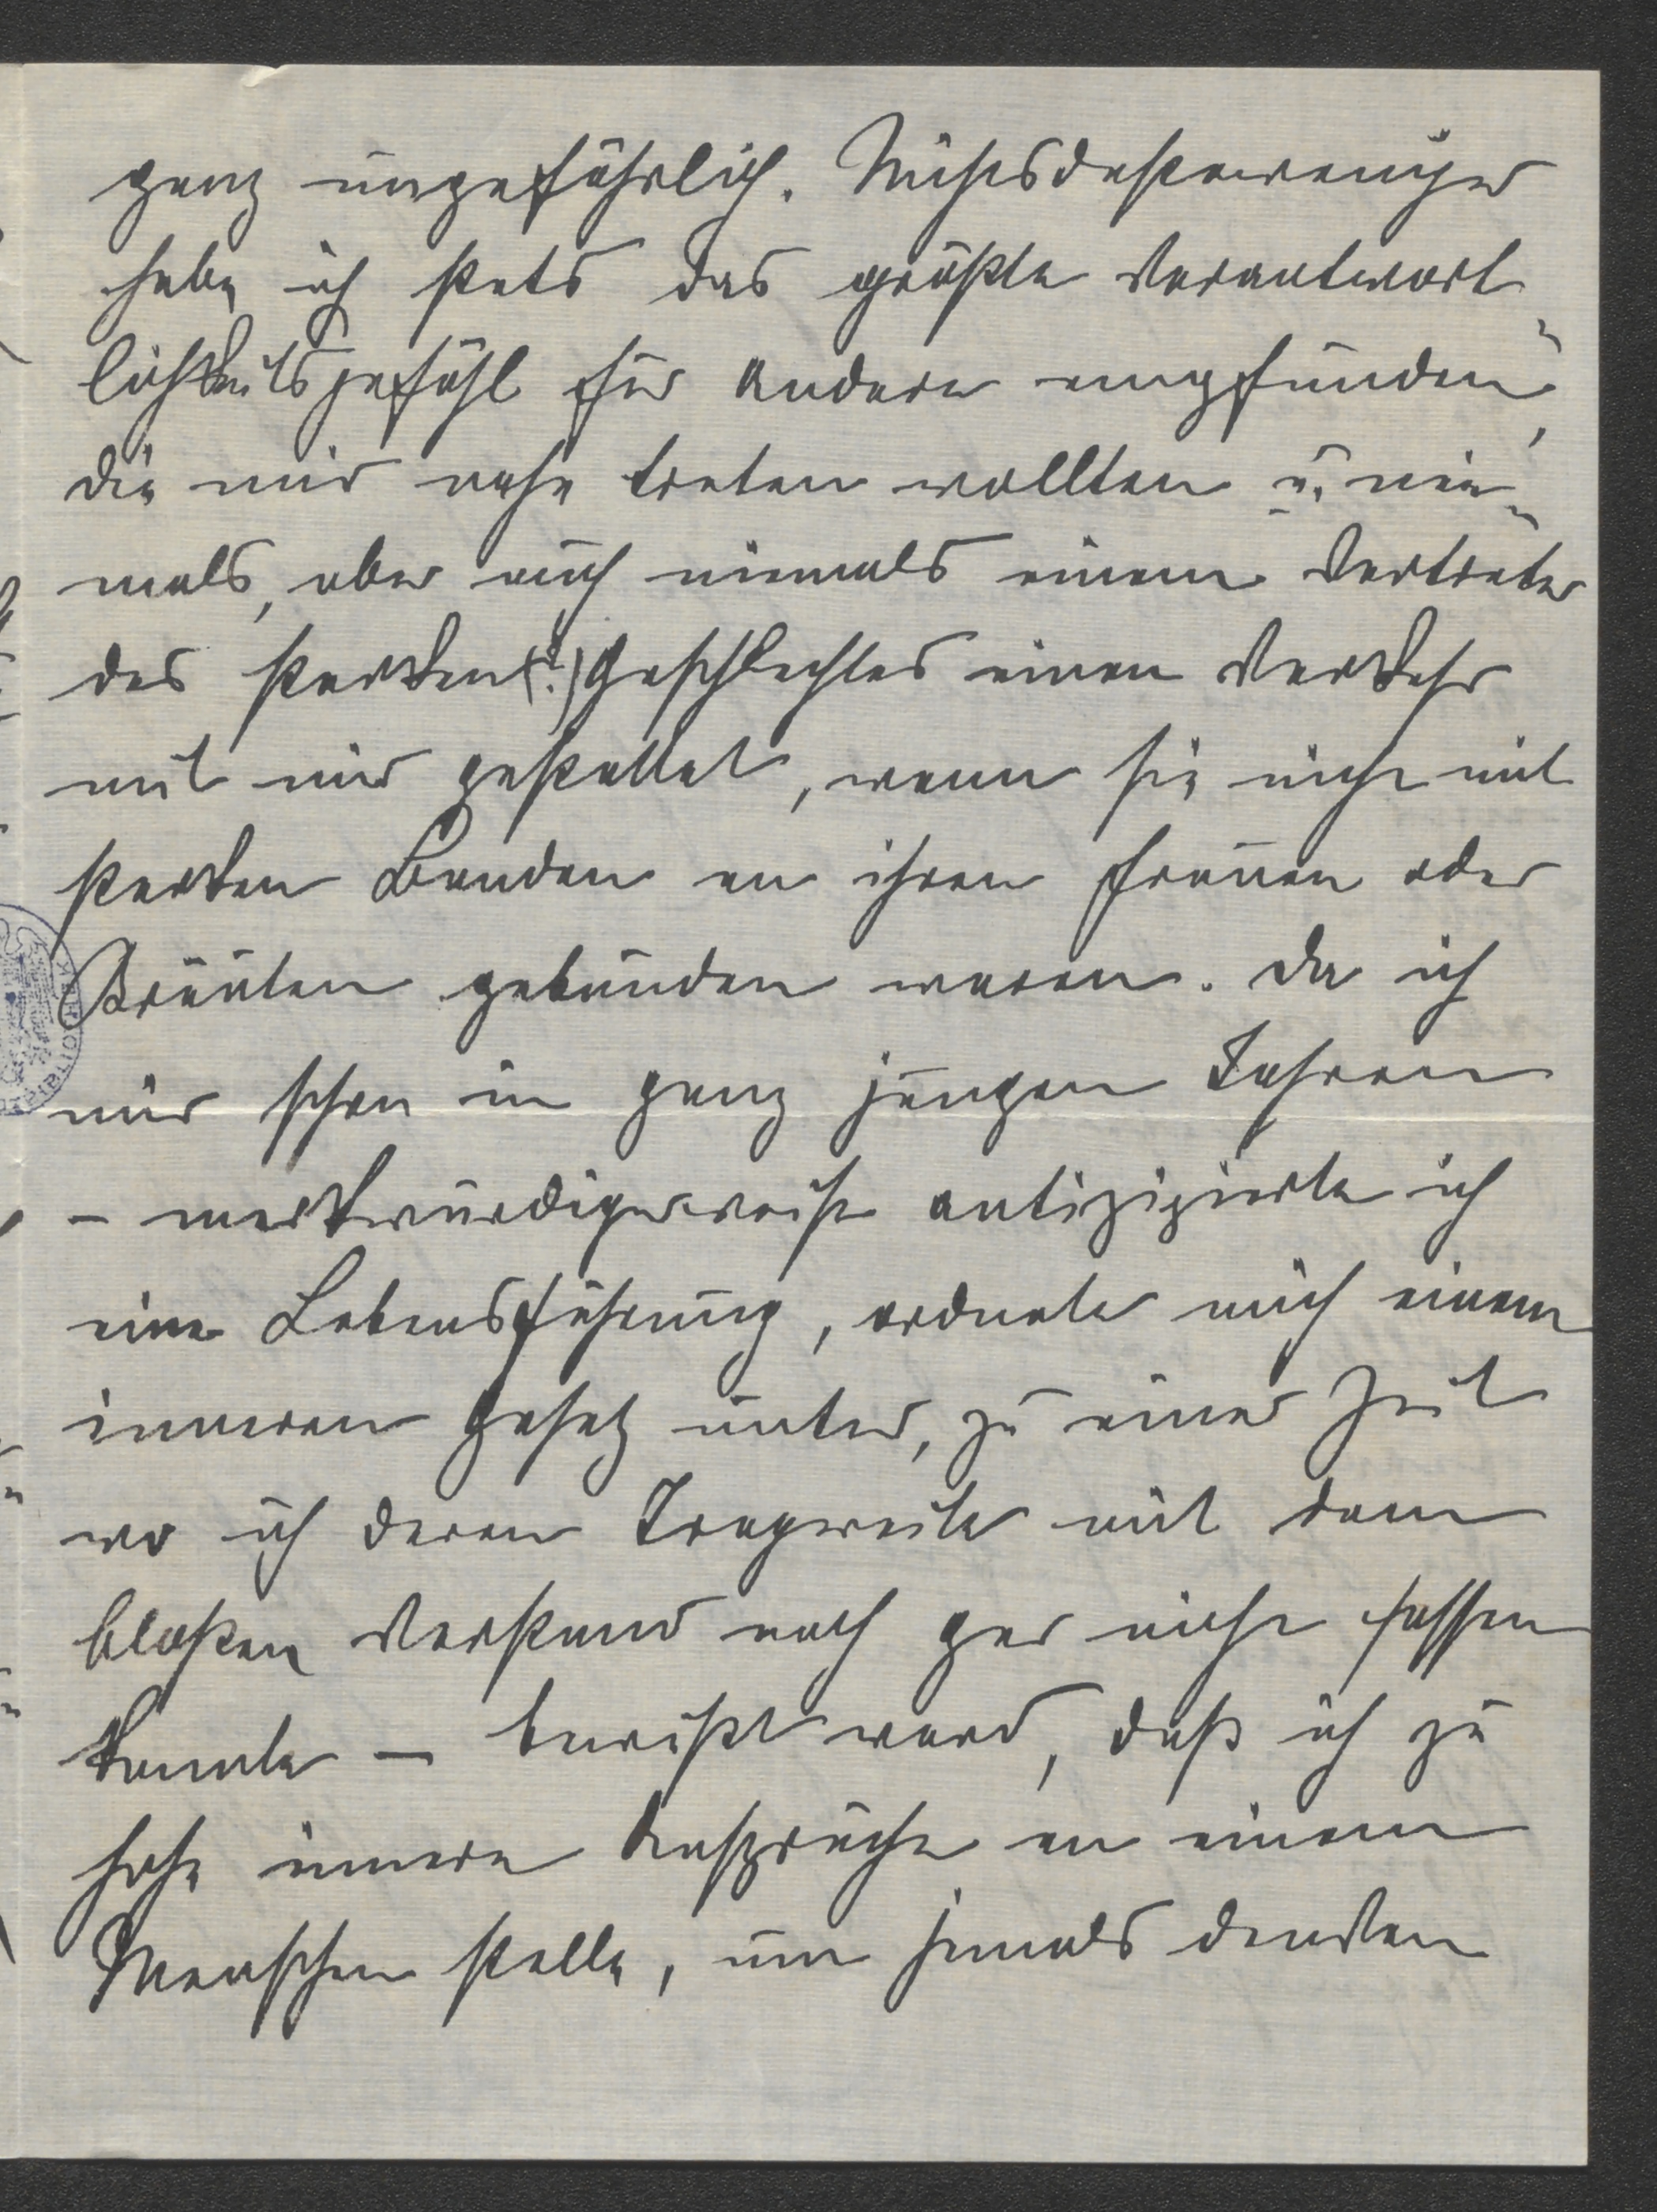 ganz ungefährlich. Nichtsdestoweniger
habe ich stets das größte Verantwort-
lichkeitsgefühl für Andere empfunden,
die mir nahe treten wollten u. nie-
mals, aber auch niemals einem Vertreter
des starken (?) Geschlechtes einen Verkehr
mit mir gestattet, wenn sie nicht mit
starken Banden an ihren Frauen oder
Bräuten gebunden waren. Da ich
mir schon in ganz jungen Jahren
– merkwürdigerweise antizipierte ich
eine Lebensführung, ordnete mich einem
inneren Gesetz unter, zu einer Zeit
wo ich deren Tragweite mit dem
bloßen Verstand noch gar nicht fassen
konnte – bewußt ward, daß ich zu
hohe innere Ansprüche an einen
Menschen stelle, um jemals denken